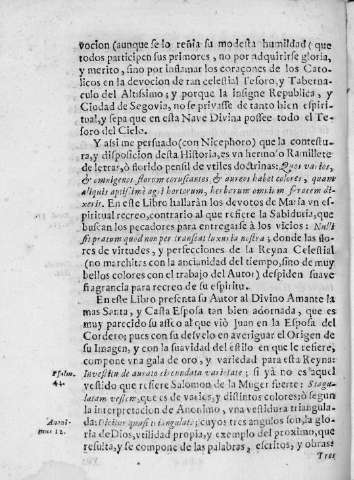 vocion (aunque se lo reñia su modesta humildad) que
todos participen sus primores, no por adquirirse gloria,
y merito, sino por inflamar los coraçones de los Cato-
licos en la devocion de tan celestial Tesoro, y Taberna-
culo del Altissimo; y porque la insigne Republica, y
Ciudad de Segovia, no se privasse de tanto bien espiri-
tual, y sepa que en esta Nave Divina possee todo el Te-
soro del Cielo.
Y assi me persuado (con Nicephoro) que la contestu-
ra, y disposicion desta Historia, es vn hermoso Ramillete
de letras, ò florido pensil de vtiles doctrinas: Quot varios,
& omnigenos florem coruscantes, & aureos habet colores, quam
aliquis aptissimè agri hortorum, herbarum omnium feracem di-
xerit. En este Libro hallaràn los devotos de Maria vn es-
piritual recreo, contrario al que refiere la Sabiduria, que
buscan los pecadores para entregarse à los vicios: Nulli
sit pratum quod non pertranseat luxuria nostra; donde las flo-
res de virtudes, y perfecciones de la Reyna Celestial
(no marchitas con la ancianidad del tiempo, sino de muy
bellos colores con el trabajo del Autor) despiden suave
fragrancia para recreo de su espiritu.
En este Libro presenta su Autor al Divino Amante la
mas Santa, y Casta Esposa tan bien adornada, que es
muy parecido su asseo al que viò Juan en la Esposa del
Cordero; pues con su desvelo en averiguar el Origen de
su Imagen, y con la suavidad del estilo en que le refiere,
compone vna gala de oro, y variedad para esta Reyna:
Psalm. 44.
In vestitu de aurato circundata varietate; si yà no es aquel
vestido que refiere Salomon de la Muger fuerte: Stagu-
latam vestem, que es de varios, y distintos colores; ò segun
la interpretacion de Anonimo, vna vestidura triangula-
da: Dicitur quasi triangulata; cuyos tres angulos son, la glo-
ria de Dios, vtilidad propia, y exemplo del proximo, que
resulta, y se compone de las palabras, escritos, y obras.
Tres